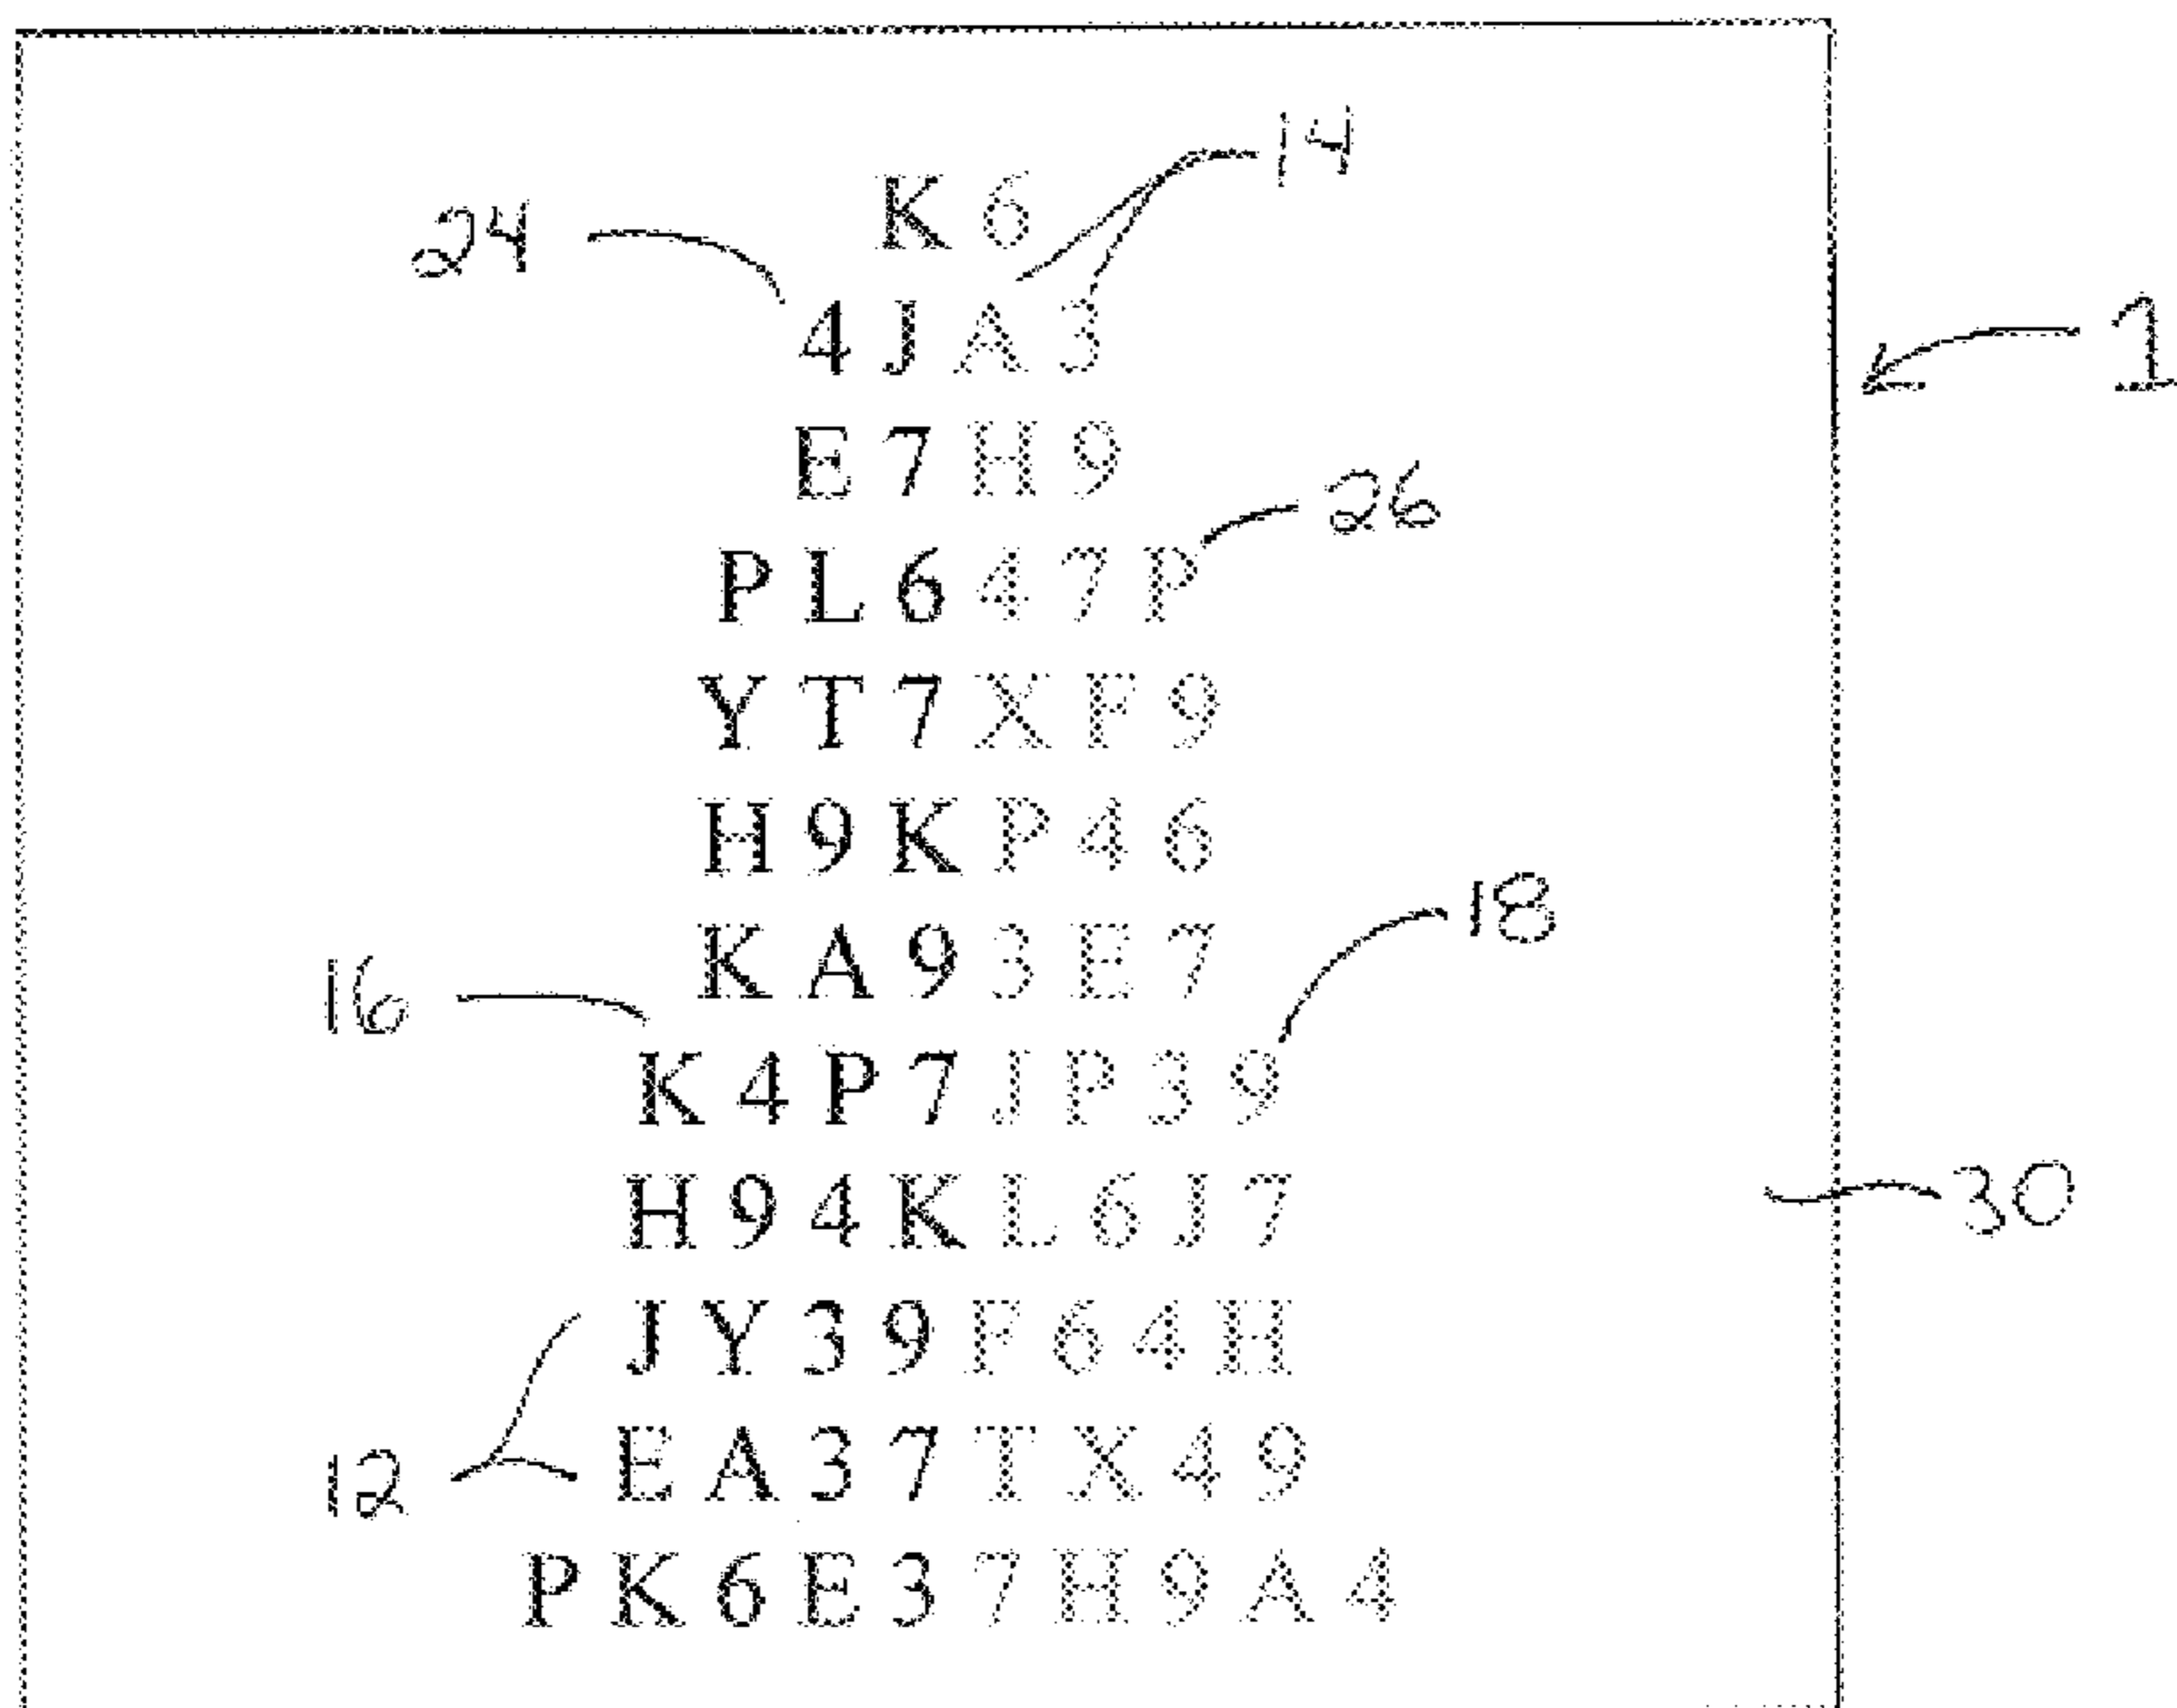 14
K 6
24
4 J A 3
1
E 7 H 9
26
P L 6 4 7 P
Y T 7 X F 9
H 9 K P 4 6
18
K A 9 3 E 7
16
K 4 P 7 J P 3 9
H 9 4 K L 6 J 7
30
J Y 3 9 F 6 4 H
12
E A 3 7 T X 4 9
P K 6 E 3 7 H 9 A 4